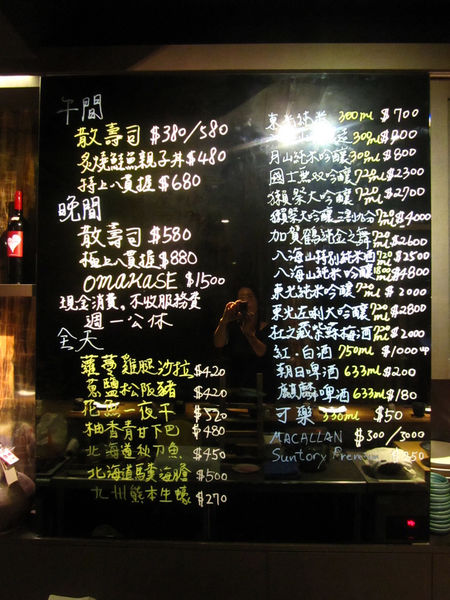 午間
散壽司 $380/580
炙燒鮭魚親子丼 $480
特上八貫握 $680
晚間
散壽司 $580
極上八貫握 $880
OMAKASE $1500
現金消費,不收服務費
週一公休
全天
蘿蔓雞腿沙拉 $420
蔥鹽松阪豬 $420
花魚一夜干 $320
柚香青甘下巴 $480
北海道秋刀魚 $450
北海道馬糞海膽 $500
九州熊本生蠔 $270
300ml $700
300ml $900
月山純米吟釀 300ml $800
國士無双吟釀 720ml $2300
獺祭大吟釀 720ml $2700
獺祭大吟釀三割九分 720ml $4000
加賀鶴純金之舞 720ml $2600
八海山特別純米酒 720ml $2500
八海山純米吟釀 1800ml $4800
東光純米吟釀 720ml $2000
東光左利大吟釀 720ml $2800
杜之藏紫蘇梅酒 720ml $2000
紅.白酒 750ml $1000up
朝日啤酒 633ml $200
麒麟啤酒 633ml $180
可樂 330ml $50
MACALLAN $300/3000
Suntory Premium $250